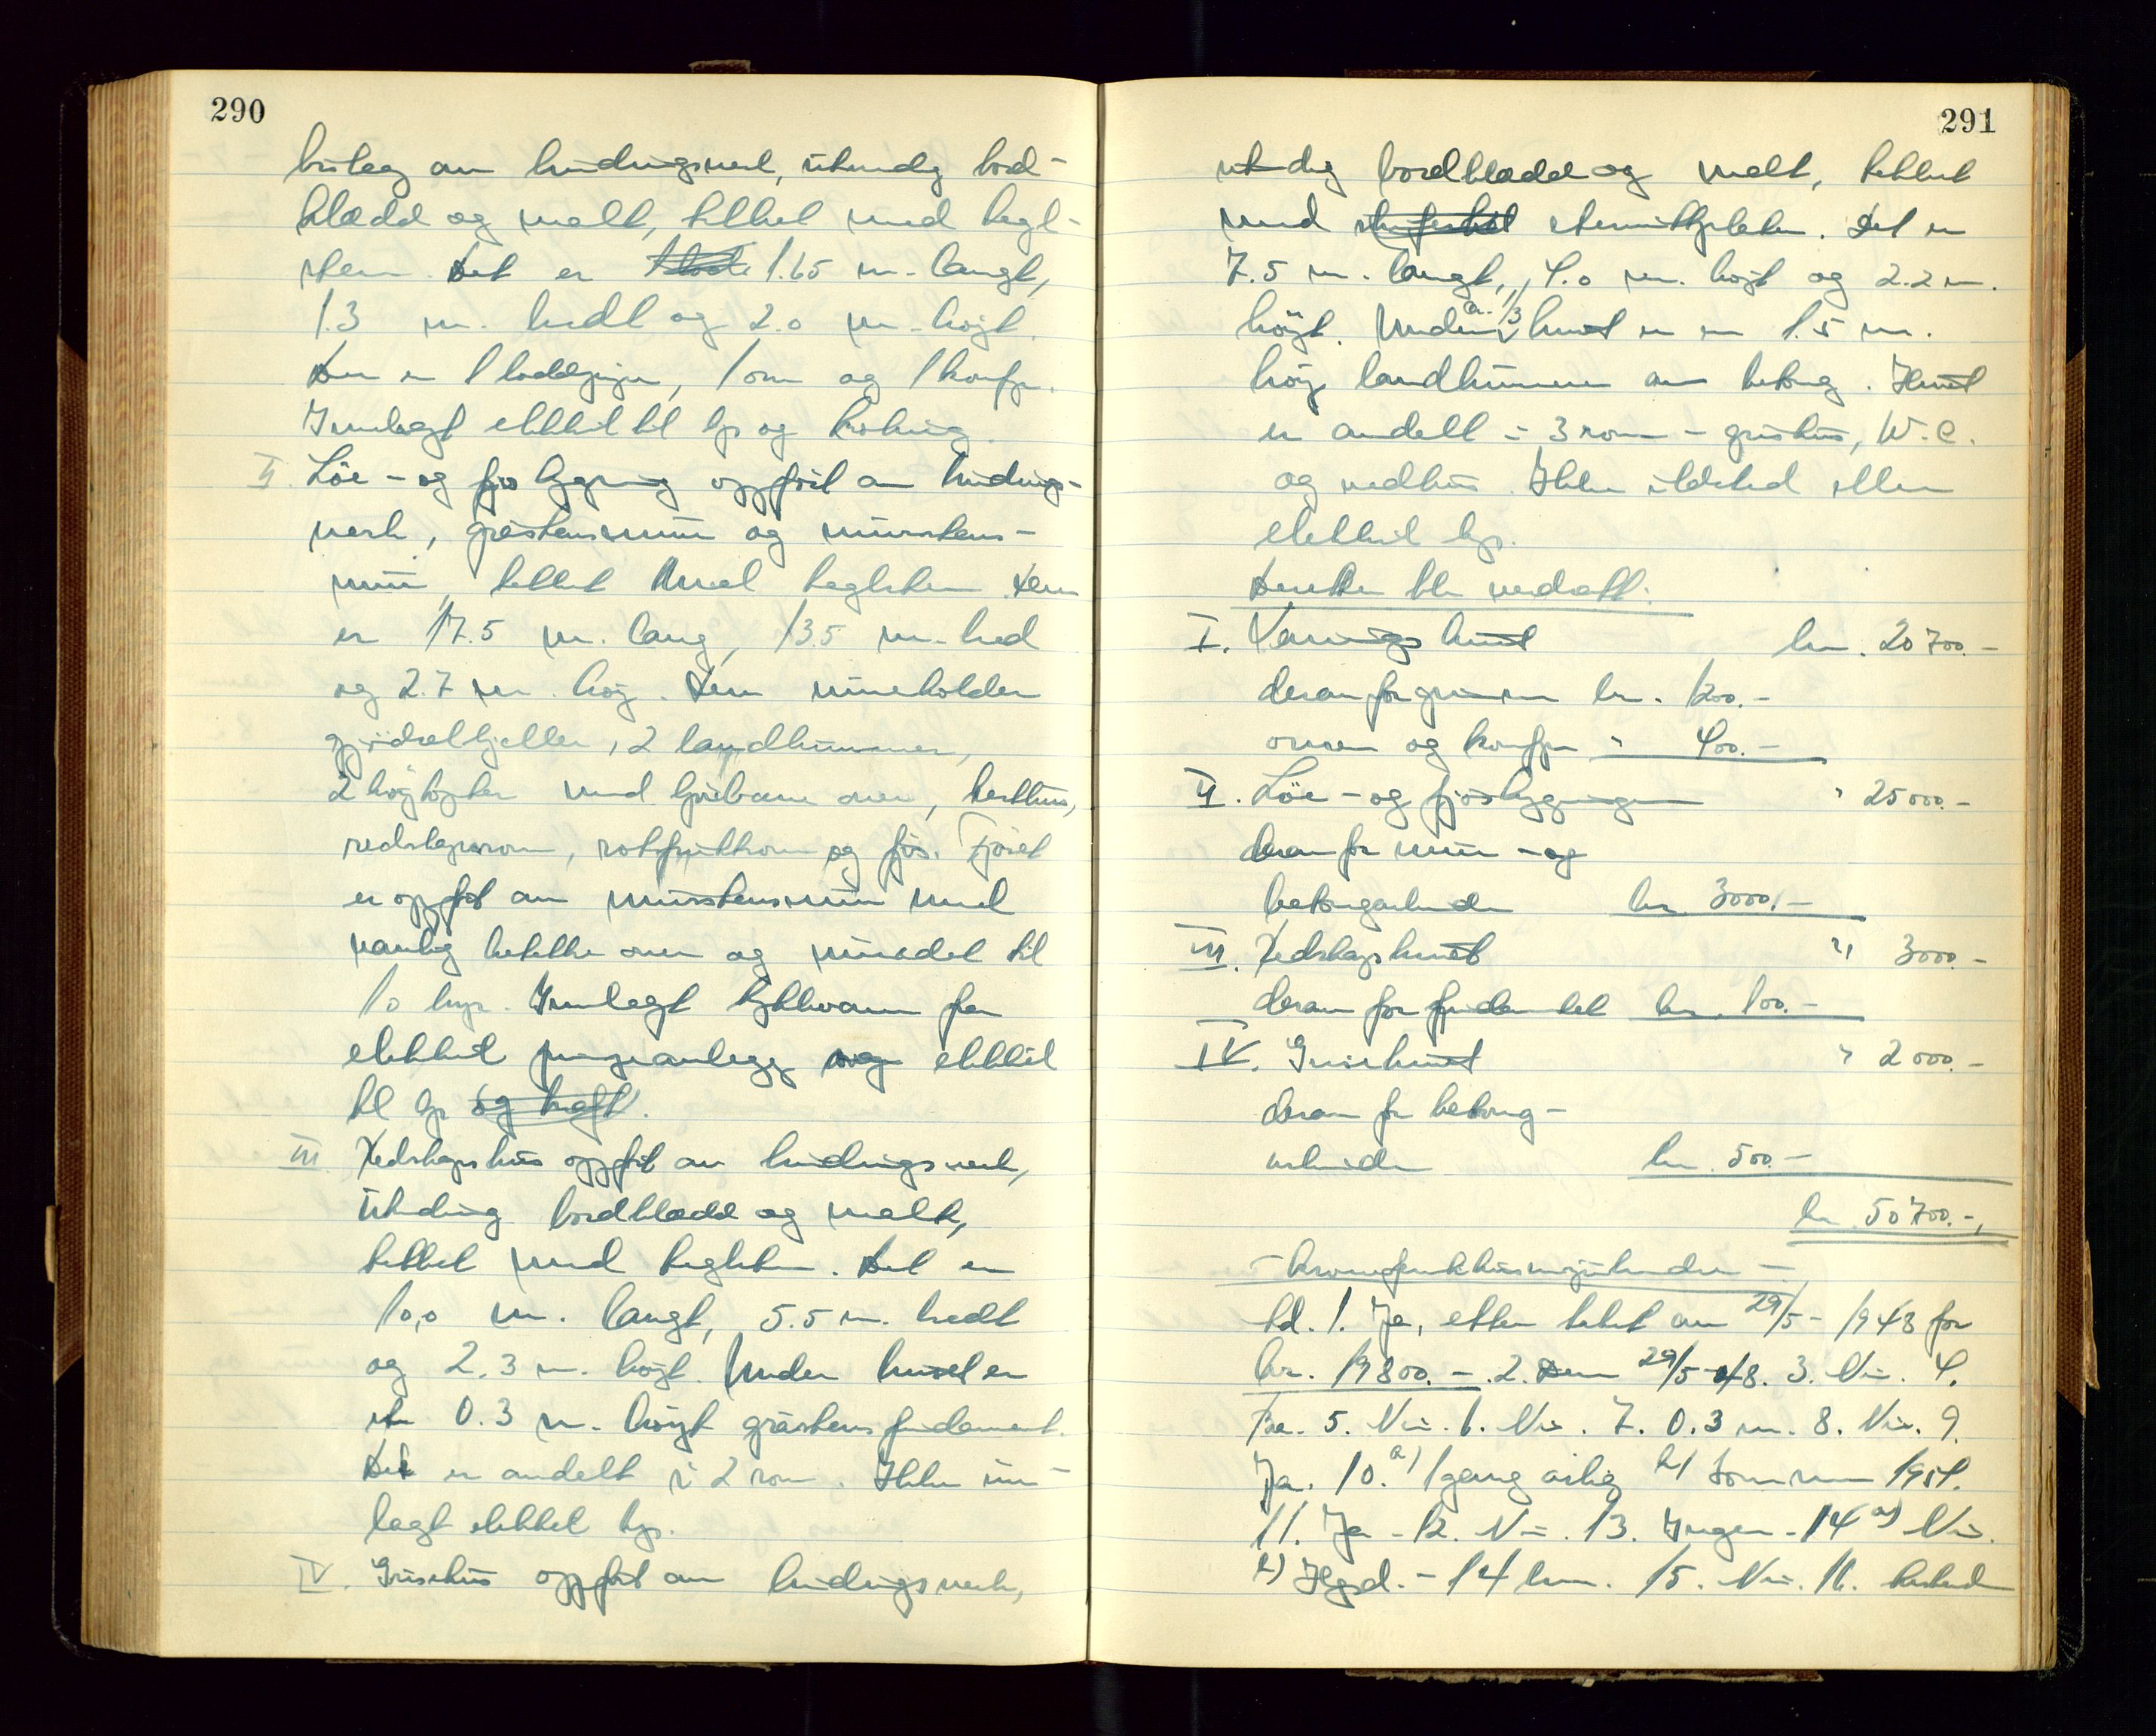 290
bislag av bindingsverk, utvendig bord-
klædd og malt, tekket med tegl-
sten. Det er 1.65 m. langt,
1.3 m. bredt og 2.0 m. höjt.
Der er 1 loddpipe, 1 ovn og 1 komfyr.
Innlagt elektrit til lys og kokning.
II. Löe- og fjösbygning oppfört av bindings-
verk, gråstensmur og murstens-
mur, tekket med teglsten. Den
er 17.5 m. lang, 13.5 m. bred
og 2.7 m. höy. Den inneholder
gjödselkjeller, 2 landkummer,
2 höytopter med kjörbane over, hesthus,
redskapsrom, rotfruktrom og fjös. Fjöset
er oppfört av murstensmur med
vanlig betekke over og innredet til
10 kyr. Innlagt trykkvann fra
elektrit pumpeanlegg og elektrit
til lys og kraft.
III. Redskapshus oppfört av bindingsverk,
utvendig bordklædd og malt,
tekket med teglsten. Det er
10,0 m. langt, 5.5 m. bredt
og 2.3 m. höyt. Under huset er
et 0.3 m. höyt gråstensfundament.
Det er avdelt i 2 rom. Ikke inn-
lagt elektrit lys.
IV. Grisehus oppfört av bindingsverk,
291
utvendig bordklædd og malt, tekket
med eternittplater. Det er
7.5 m. langt, 4.0 m. höjt og 2.2 m.
höyt. Under ca. 1/3 av huset er en 1.5 m.
höy landkumme av betong. Huset
er avdelt i 3 rom - grishus, W.C.
og vedhus. Ikke ildsted eller
elektrit lys.
Deretter ble verdsatt:
I. Vånings huset kr. 20 700.-
derav for grunnmur kr. 1200.-
ovnen og komfyr " 400.-
II. Löe- og fjösbygningen " 25 000.-
derav for mur- og
betongarbeider kr. 3000.-
III. Redskapshuset " 3000.-
derav for fundamentet kr. 100.-
IV. Grisehuset " 2 000.-
derav for betong-
arbeider kr. 500.-
kr. 50 700.-
td. 1. Ja, etter takst av 29/5-1948 for
kr. 19 800.- 2. Den 29/5-48. 3. Nei. 4.
Tre. 5. Nei. 6. Nei. 7. 0.3 m. 8. Nei. 9.
Ja. 10. a) 1 gang årlig b) Sommeren 1951.
11. Ja - 12. Nei. 13. Ingen - 14 a) Nei.
b) Hgsd. - 14 km. 15. Nei. 16.